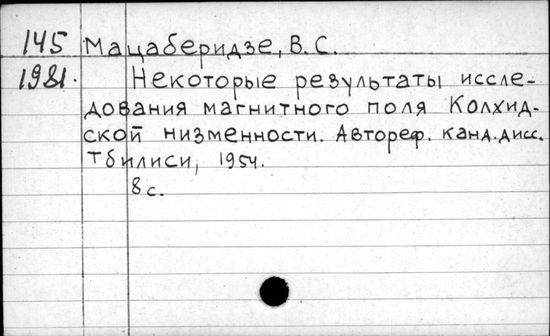 145 Мацаберидзе, В. С.
1981. Некоторые результаты иссле-
дования магнитного поля Колхид-
ской низменности. Автореф. канд. дисс.
Тбилиси, 1954.
8 с.